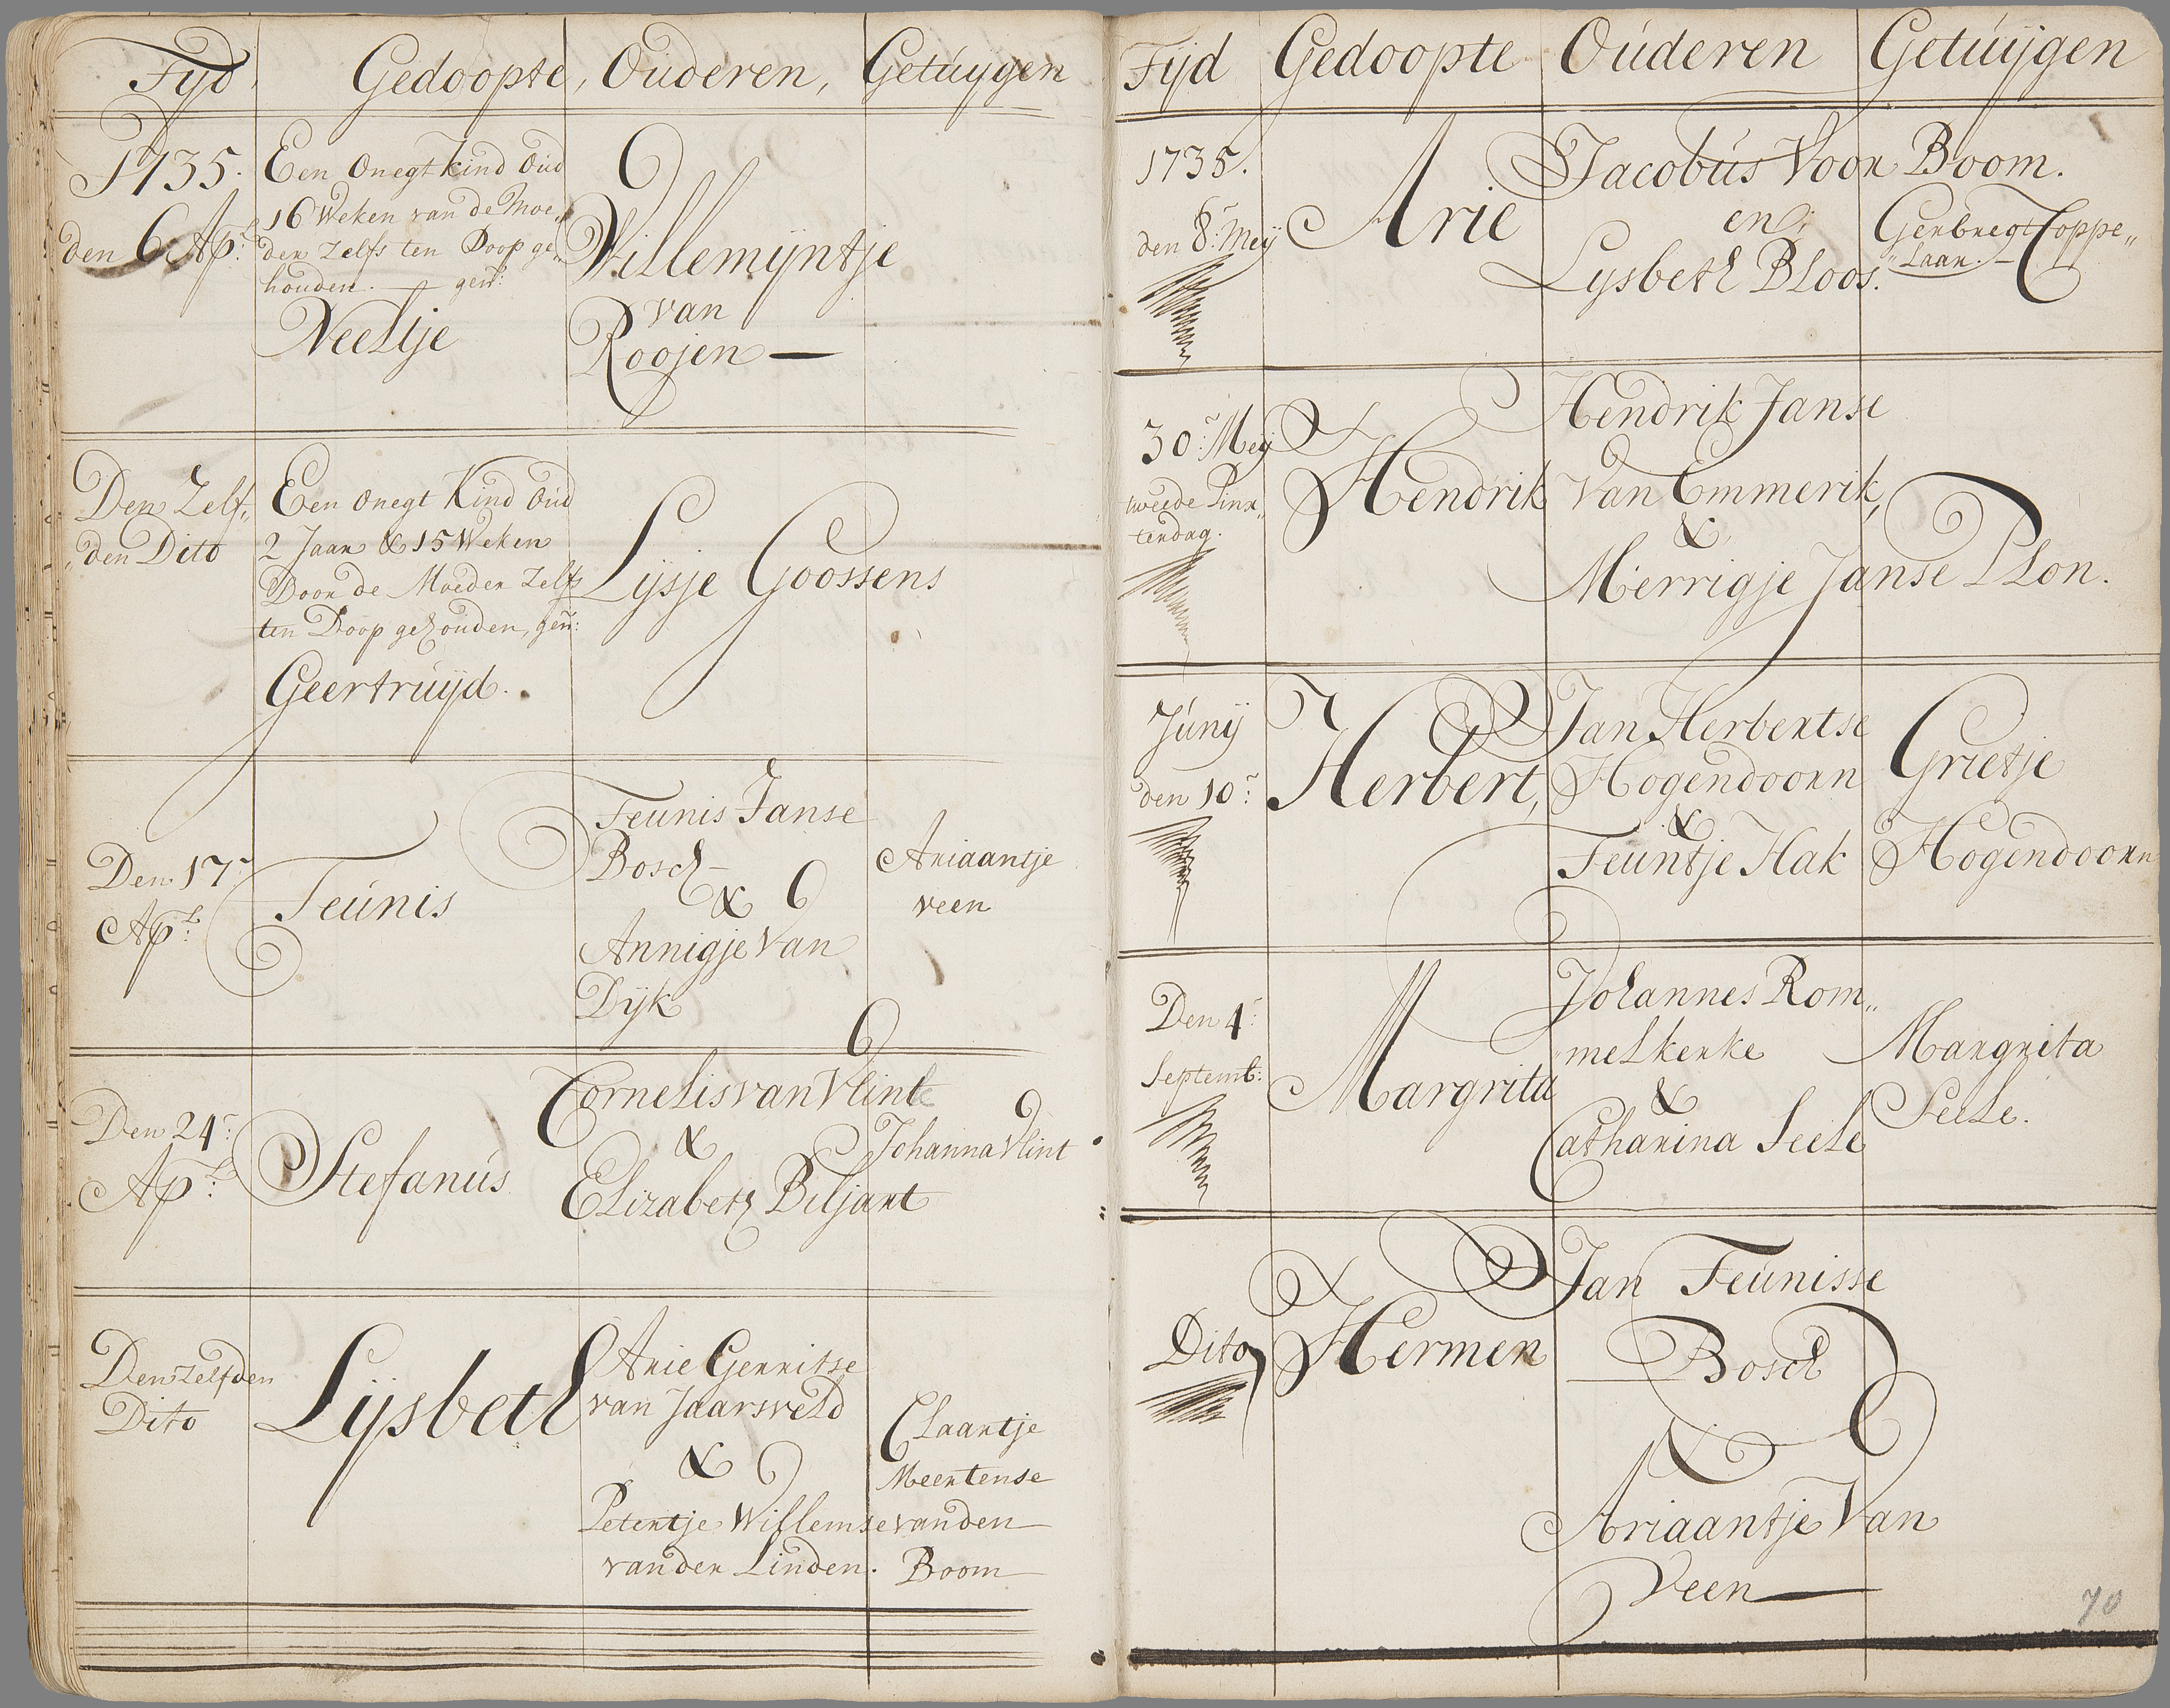 Tyd, Gedoopte, Ouderen, Getuygen
1735.
den 6 Ap:l
Een onegt kind oud
16 Weken van de Moe„
der zelfs ten Doop ge„
houden. — gen:
Neeltje
Willemijntje
van
Roojen —
Den Zelf„
den Dito
Een onegt Kind oud
2 Jaar & 15 Weken
Door de Moeder Zelfs
ten Doop gehouden, gen:
Geertruijd.
Lysje Goossens
Den 17:
Ap:l
Teunis
Teunis Janse
Bosch
&
Annigje van
Dijk
Ariaantje
veen
Den 24:
Ap:l
Stefanus
Cornelis van Vlint
&
Elizabeth Biljart
Johanna Vlint
Den zelfden
Dito
Lijsbeth
Arie Gerritse
van Jaarsveld
&
Petertje Willemse
van der Linden.
Claartje
Meertense
van den
Boom
Tijd Gedoopte Ouderen Getuijgen
1735.
den 8: Meij
Arie
Jacobus Voor Boom.
en
Lysbeth Bloos.
Gerbregt Coppe„
„laar. —
30: Meij
tweede Pinx„
terdag.
Hendrik
Hendrik Janse
Van Emmerik,
&
Merrigje Janse Plon.
Junij
den 10:
Herbert,
Jan Herbertse
Hogendoorn
&
Teuntje Hak
Grietje
Hogendoorn
Den 4:
Septemb:
Margrita
Johannes Rom„
„melkerke
&
Catharina Seele
Margrita
Seele.
Dito
Hermen
Jan Teunisse
Bosch
&
Ariaantje Van
Veen —
70